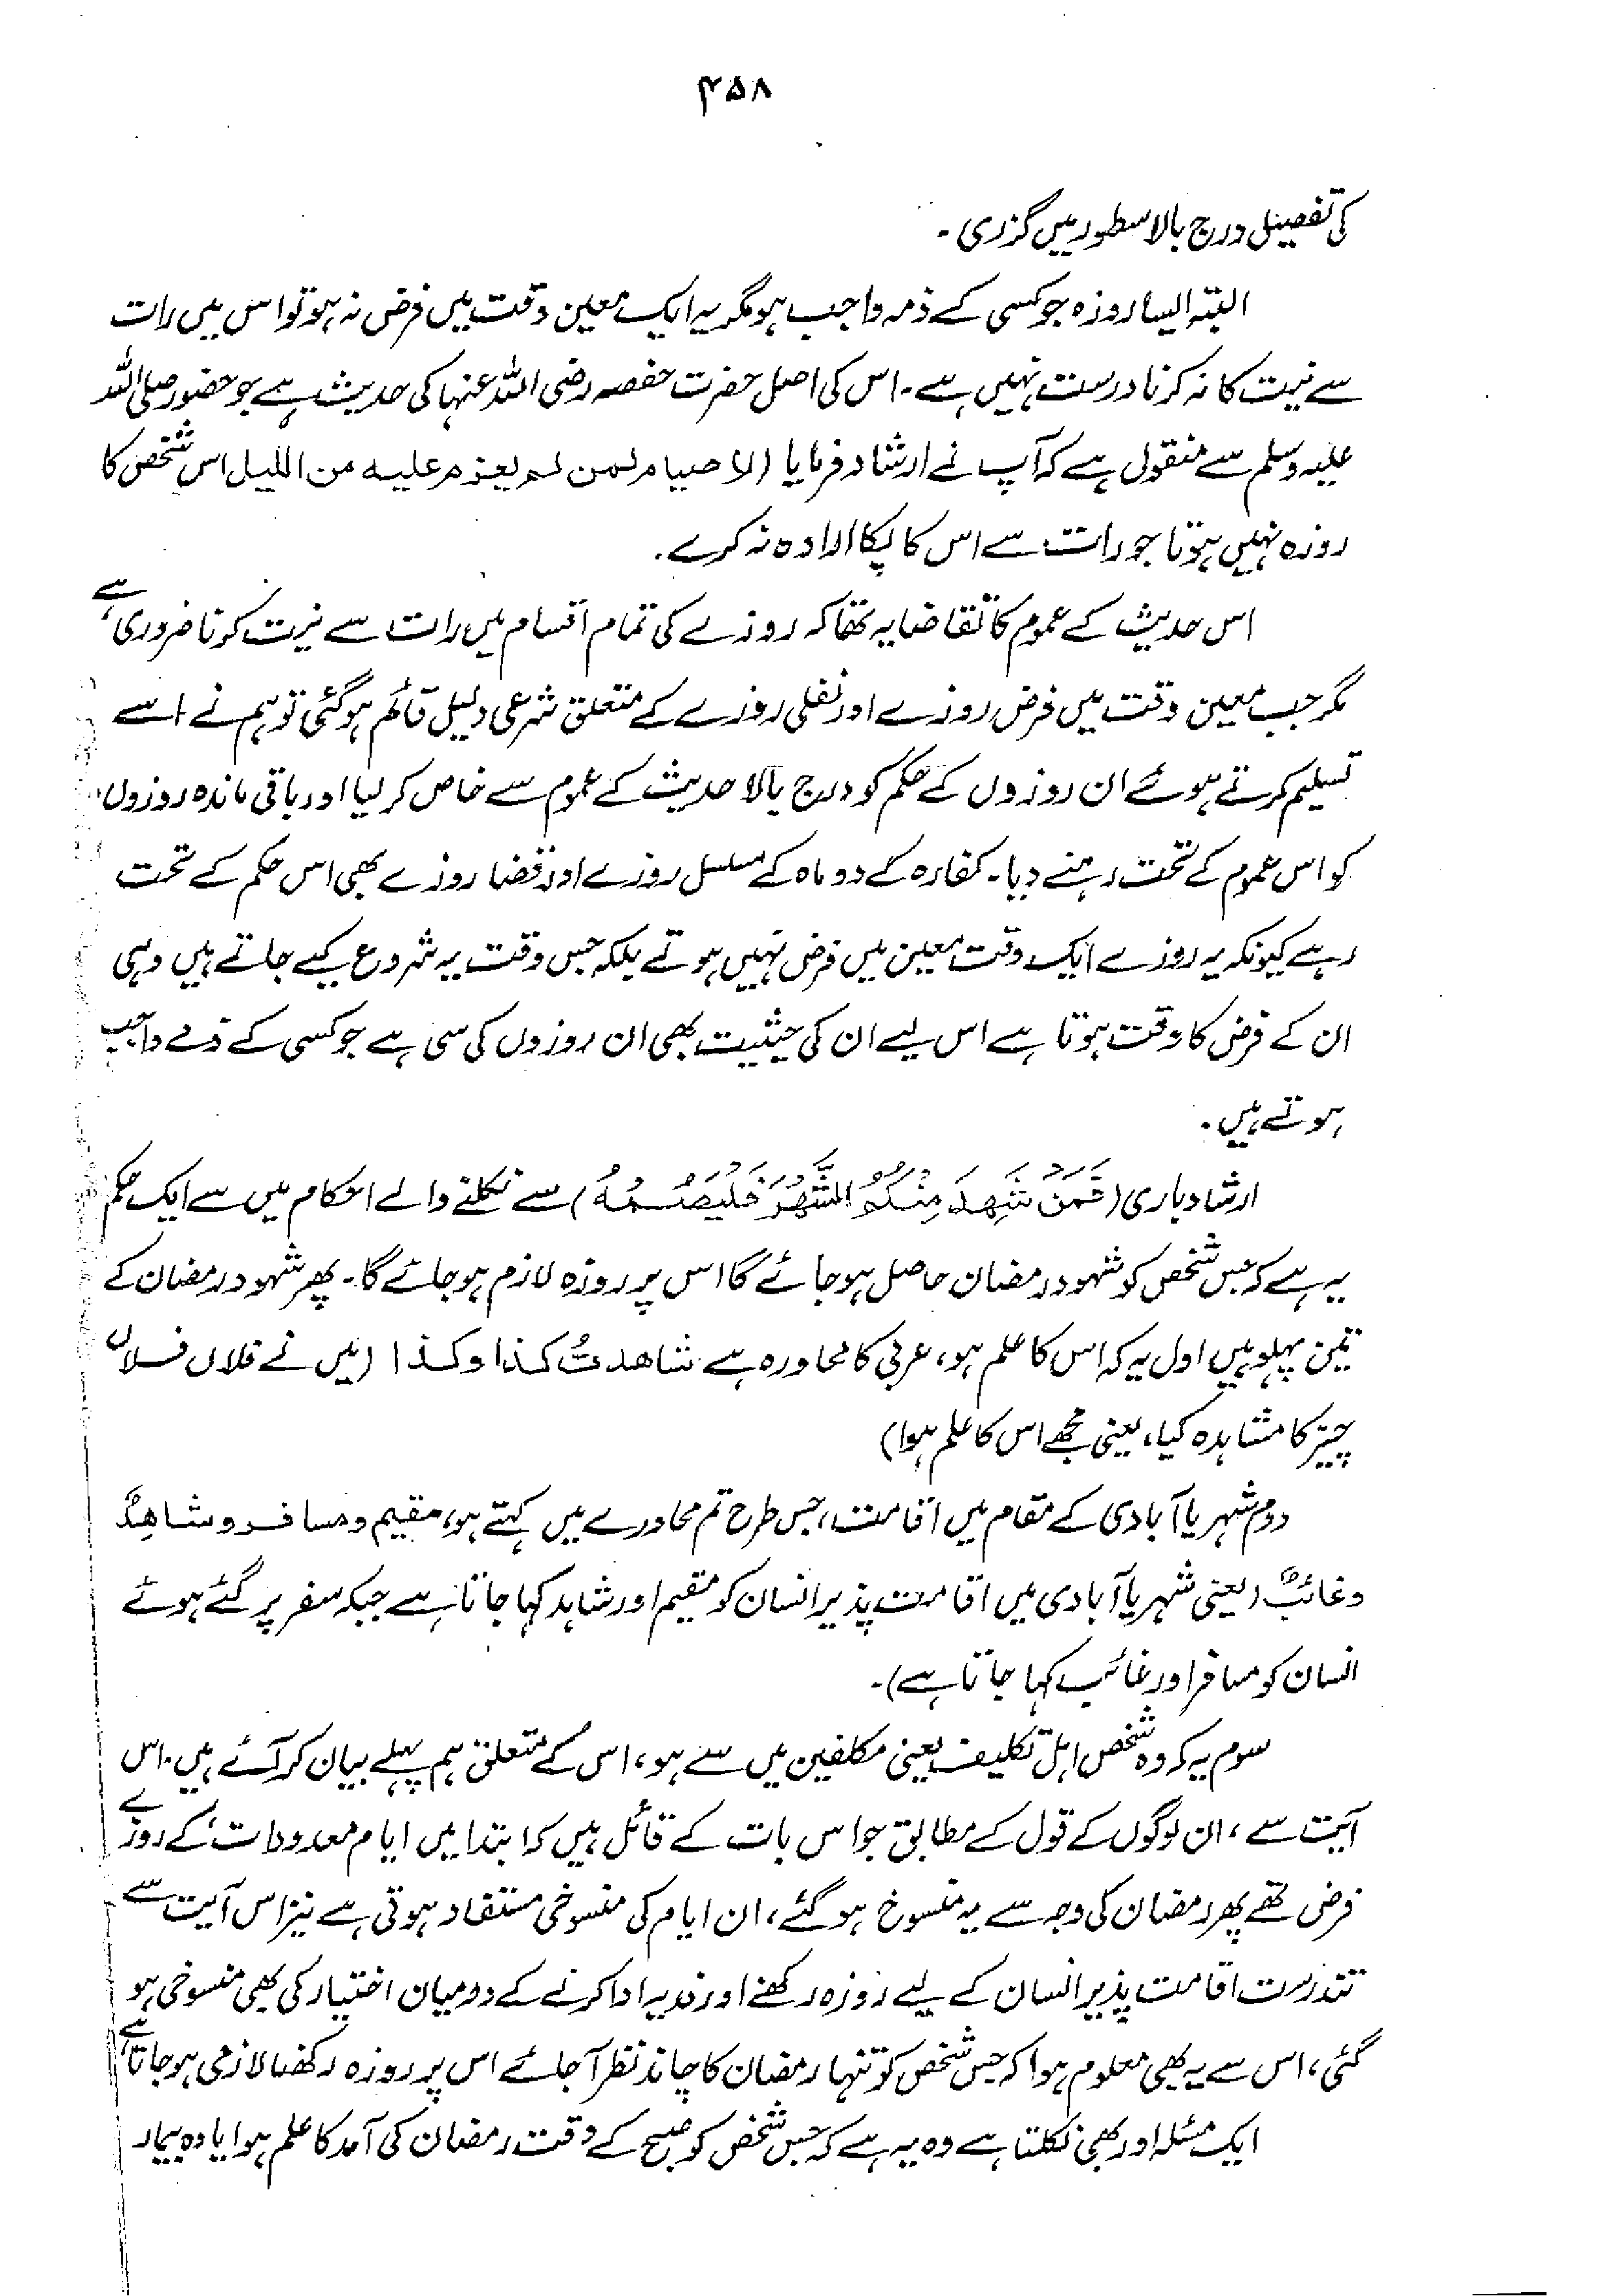 ۴۵۸
کی تفصیل درج بالا سطور میں گزری۔
البتہ ایسا روزہ جو کسی کے ذمہ واجب ہو مگر یہ ایک معین وقت میں فرض نہ ہو تو اس میں رات
سے نیت کا نہ کرنا درست نہیں ہے۔ اس کی اصل حضرت حفصہ رضی اللہ عنہا کی حدیث ہے جو حضور صلی اللہ
علیہ وسلم سے منقول ہے کہ آپ نے ارشاد فرمایا (لا صیام لمن لم یعزم علیہ من اللیل اس شخص کا
روزہ نہیں ہوتا جو رات سے اس کا پکا ارادہ نہ کرے۔
اس حدیث کے عموم کا تقاضا یہ تھا کہ روزے کی تمام اقسام میں رات سے نیت کرنا ضروری ہے،
مگر جب معین وقت میں فرض روزے اور نفلی روزے کے متعلق شرعی دلیل قائم ہو گئی تو ہم نے اسے
تسلیم کرتے ہوئے ان روزوں کے حکم کو درج بالا حدیث کے عموم سے خاص کر لیا اور باقی ماندہ روزوں
کو اس عموم کے تحت رہنے دیا۔ کفارہ کے دو ماہ کے مسلسل روزے اور قضا روزے بھی اس حکم کے تحت
رہے کیونکہ یہ روزے ایک وقت معین میں فرض نہیں ہوتے بلکہ جس وقت یہ شروع کیے جاتے ہیں وہی
ان کے فرض کا وقت ہوتا ہے اس لیے ان کی حیثیت بھی ان روزوں کی سی ہے جو کسی کے ذمے واجب
ہوتے ہیں۔
ارشاد باری (فَمَنْ شَهِدَ مِنْكُمُ الشَّهْرَ فَلْيَصُمْهُ) سے نکلنے والے احکام میں سے ایک حکم
یہ ہے کہ جس شخص کو شہود رمضان حاصل ہو جائے گا اس پر روزہ لازم ہو جائے گا۔ پھر شہود رمضان کے
تین پہلو ہیں اول یہ کہ اس کا علم ہو، عربی کا محاورہ ہے شاھدتُ کذا وکذا (میں نے فلاں فلاں
چیز کا مشاہدہ کیا، یعنی مجھے اس کا علم ہوا)
دوم شہر یا آبادی کے مقام میں اقامت، جس طرح تم محاورے میں کہتے ہو، مقیم ومسافر وشاھِدٌ
وغائبٌ (یعنی شہر یا آبادی میں اقامت پذیر انسان کو مقیم اور شاہد کہا جاتا ہے جبکہ سفر پر گئے ہوئے
انسان کو مسافر اور غائب کہا جاتا ہے)۔
سوم یہ کہ وہ شخص اہل تکلیف یعنی مکلفین میں سے ہو، اس کے متعلق ہم پہلے بیان کر آئے ہیں۔ اس
آیت سے، ان لوگوں کے قول کے مطابق جو اس بات کے قائل ہیں کہ ابتدا میں ایام معدودات، کے روزے
فرض تھے پھر رمضان کی وجہ سے یہ منسوخ ہو گئے، ان ایام کی منسوخی مستفاد ہوتی ہے نیز اس آیت سے
تندرست اقامت پذیر انسان کے لیے روزہ رکھنے اور فدیہ ادا کرنے کے درمیان اختیار کی بھی منسوخی ہو
گئی، اس سے یہ بھی معلوم ہوا کہ جس شخص کو تنہا رمضان کا چاند نظر آ جائے اس پر روزہ رکھنا لازمی ہو جاتا ہے،
ایک مسئلہ اور بھی نکلتا ہے وہ یہ ہے کہ جس شخص کو صبح کے وقت رمضان کی آمد کا علم ہوا یا وہ بیمار